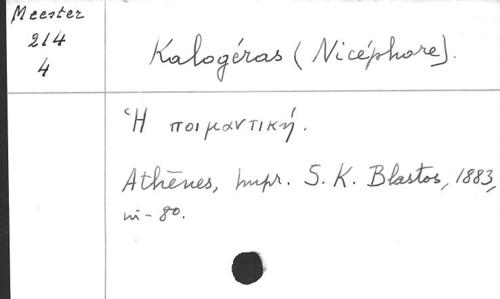 Meester
214
4
Kalogéras (Nicéphore).
Ἡ ποιμαντική.
Athènes, Impr. S. K. Blastos, 1883,
in-8o.